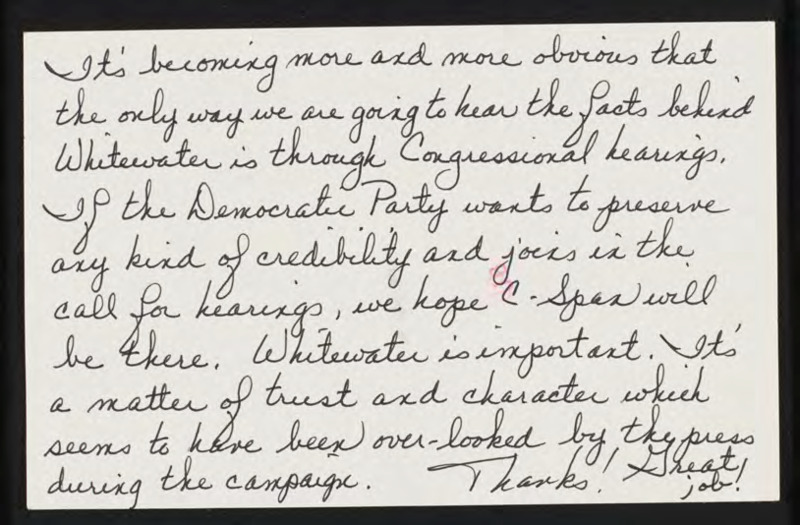 It's becoming more and more obvious that
the only way we are going to hear the facts behind
Whitewater is through Congressional hearings.
If the Democratic Party wants to preserve
any kind of credibility and joins in the
call for hearings, we hope C-Span will
be there. Whitewater is important. It's
a matter of trust and character which
seems to have been over-looked by the press
during the campaign. Thanks! Great
job!